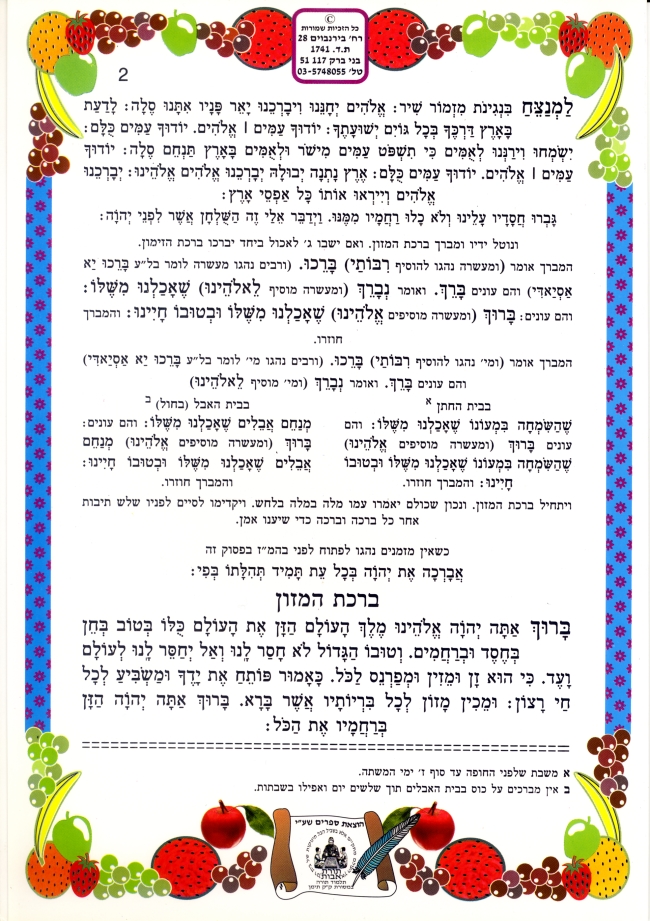 ©
כל הזכיות שמורות
רח' בירנבוים 28
ת.ד. 1741
בני ברק 117 51
טל' 03-5748055
2
לַמְנַצֵּחַ בִּנְגִינֹת מִזְמוֹר שִׁיר: אֱלֹהִים יְחָנֵּנוּ וִיבָרְכֵנוּ יָאֵר פָּנָיו אִתָּנוּ סֶלָה: לָדַעַת
בָּאָרֶץ דַּרְכֶּךָ בְּכָל גּוֹיִם יְשׁוּעָתֶךָ: יוֹדוּךָ עַמִּים | אֱלֹהִים. יוֹדוּךָ עַמִּים כֻּלָּם:
יִשְׂמְחוּ וִירַנְּנוּ לְאֻמִּים כִּי תִשְׁפֹּט עַמִּים מִישֹׁר וּלְאֻמִּים בָּאָרֶץ תַּנְחֵם סֶלָה: יוֹדוּךָ
עַמִּים | אֱלֹהִים. יוֹדוּךָ עַמִּים כֻּלָּם: אֶרֶץ נָתְנָה יְבוּלָהּ יְבָרְכֵנוּ אֱלֹהִים אֱלֹהֵינוּ: יְבָרְכֵנוּ
אֱלֹהִים וְיִירְאוּ אוֹתוֹ כָּל אַפְסֵי אָרֶץ:
גָּבְרוּ חֲסָדָיו עָלֵינוּ וְלֹא כָלוּ רַחֲמָיו מִמֶּנּוּ. וַיְדַבֵּר אֵלַי זֶה הַשֻּׁלְחָן אֲשֶׁר לִפְנֵי יְהוָה:
ונוטל ידיו ומברך ברכת המזון. ואם ישבו ג' לאכול ביחד יברכו ברכת הזימון.
המברך אומר (ומעשרה נהגו להוסיף רִבּוֹתַי) בָּרְכוּ. (ורבים נהגו מעשרה לומר בל״ע בָּרְכוּ יַא
אַסְיַאדִּי) והם עונים בָּרֵךְ. ואומר נְבָרֵךְ (ומעשרה מוסיף לֵאלֹהֵינוּ) שֶׁאָכַלְנוּ מִשֶּׁלּוֹ:
והם עונים: בָּרוּךְ (ומעשרה מוסיפים אֱלֹהֵינוּ) שֶׁאָכַלְנוּ מִשֶּׁלּוֹ וּבְטוּבוֹ חָיִינוּ: והמברך
חוזרו.
המברך אומר (ומי' נהגו להוסיף רִבּוֹתַי) בָּרְכוּ. (ורבים נהגו מי' לומר בל״ע בָּרְכוּ יַא אַסְיַאדִּי)
והם עונים בָּרֵךְ. ואומר נְבָרֵךְ (ומי' מוסיף לֵאלֹהֵינוּ)
בבית החתן א
שֶׁהַשִּׂמְחָה בִּמְעוֹנוֹ שֶׁאָכַלְנוּ מִשֶּׁלּוֹ: והם
עונים בָּרוּךְ (ומעשרה מוסיפים אֱלֹהֵינוּ)
שֶׁהַשִּׂמְחָה בִּמְעוֹנוֹ שֶׁאָכַלְנוּ מִשֶּׁלּוֹ וּבְטוּבוֹ
חָיִינוּ: והמברך חוזרו.
בבית האבל (בחול) ב
מְנַחֵם אֲבֵלִים שֶׁאָכַלְנוּ מִשֶּׁלּוֹ: והם עונים:
בָּרוּךְ (ומעשרה מוסיפים אֱלֹהֵינוּ) מְנַחֵם
אֲבֵלִים שֶׁאָכַלְנוּ מִשֶּׁלּוֹ וּבְטוּבוֹ חָיִינוּ:
והמברך חוזרו.
ויתחיל ברכת המזון. ונכון שכולם יאמרו עמו מלה במלה בלחש. ויקדימו לסיים לפניו שלש תיבות
אחר כל ברכה וברכה כדי שיענו אמן.
כשאין מזמנים נהגו לפתוח לפני בהמ״ז בפסוק זה
אֲבָרְכָה אֶת יְהוָה בְּכָל עֵת תָּמִיד תְּהִלָּתוֹ בְּפִי:
ברכת המזון
בָּרוּךְ אַתָּה יְהוָה אֱלֹהֵינוּ מֶלֶךְ הָעוֹלָם הַזָּן אֶת הָעוֹלָם כֻּלּוֹ בְּטוֹב בְּחֵן
בְּחֶסֶד וּבְרַחֲמִים. וְטוּבוֹ הַגָּדוֹל לֹא חָסַר לָנוּ וְאַל יְחַסֵּר לָנוּ לְעוֹלָם
וָעֶד. כִּי הוּא זָן וּמֵזִין וּמְפַרְנֵס לַכֹּל. כָּאָמוּר פּוֹתֵחַ אֶת יָדֶךָ וּמַשְׂבִּיעַ לְכָל
חַי רָצוֹן: וּמֵכִין מָזוֹן לְכָל בְּרִיּוֹתָיו אֲשֶׁר בָּרָא. בָּרוּךְ אַתָּה יְהוָה הַזָּן
בְּרַחֲמָיו אֶת הַכֹּל:
א משבת שלפני החופה עד סוף ז' ימי המשתה.
ב אין מברכים על כוס בבית האבלים תוך שלשים יום ואפילו בשבתות.
הוצאת ספרים שע״י
תורת
אבות
תלמוד תורה
במסורת ק״ק תימן